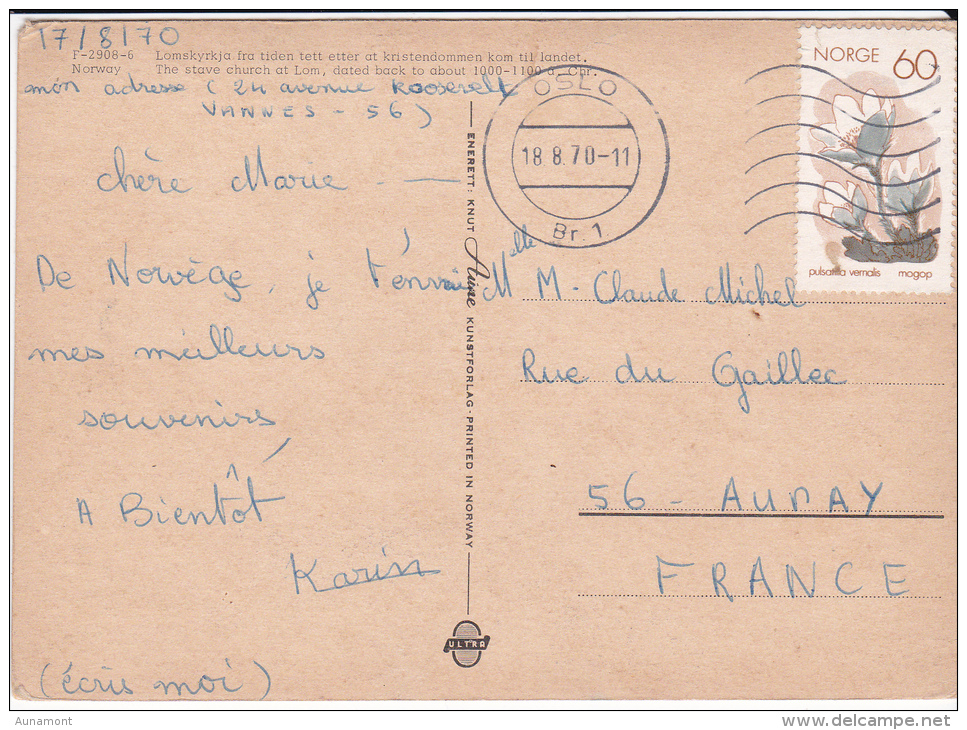 17/8/70
F-2908-6 Lomskyrkja fra tiden tett etter at kristendommen kom til landet.
Norway The stave church at Lom, dated back to about 1000-1100 a. Chr.
mon adresse (24 avenue Roosevelt
VANNES - 56)
chère Marie
De Norvège, je t'envoie
mes meilleurs
souvenirs
A Bientôt
Karin
(écris moi)
ENERETT: KNUT Aune KUNSTFORLAG · PRINTED IN NORWAY
ULTRA
OSLO
18 8.70-11
Br. 1
NORGE 60
pulsatilla vernalis mogop
Melle M-Claude Michel
Rue du Gaillec
56 - AURAY
FRANCE
Aunamont
www.delcampe.net